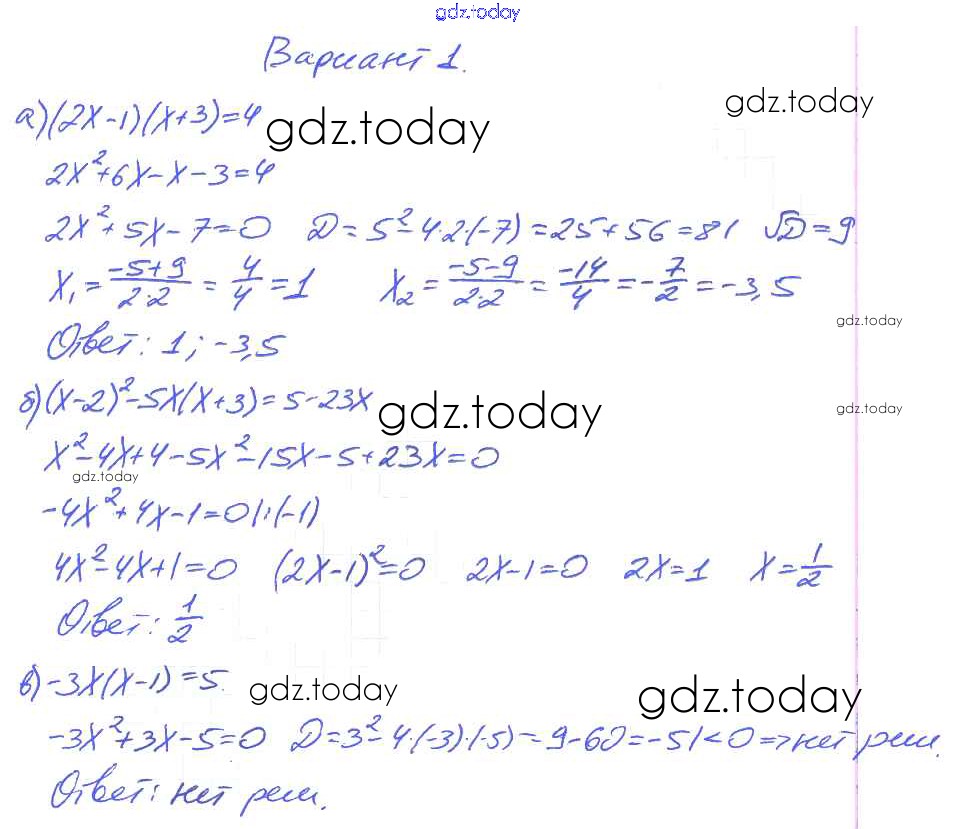 gdz.today
Вариант 1.
а) (2x-1)(x+3)=4
gdz.today
gdz.today
2x²+6x-x-3=4
2x²+5x-7=0 D=5²-4·2·(-7)=25+56=81 √D=9
x₁=(-5+9)/(2·2)=4/4=1 x₂=(-5-9)/(2·2)=-14/4=-7/2=-3,5
gdz.today
Ответ: 1; -3,5
б) (x-2)²-5x(x+3)=5-23x
gdz.today
gdz.today
x²-4x+4-5x²-15x-5+23x=0
gdz.today
-4x²+4x-1=0 |:(-1)
4x²-4x+1=0 (2x-1)²=0 2x-1=0 2x=1 x=1/2
Ответ: 1/2
в) -3x(x-1)=5.
gdz.today
gdz.today
-3x²+3x-5=0 D=3²-4·(-3)·(-5)=9-60=-51<0=>нет реш.
Ответ: нет реш.